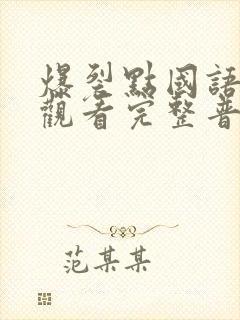 爆裂點國語
觀看完整普
范某某